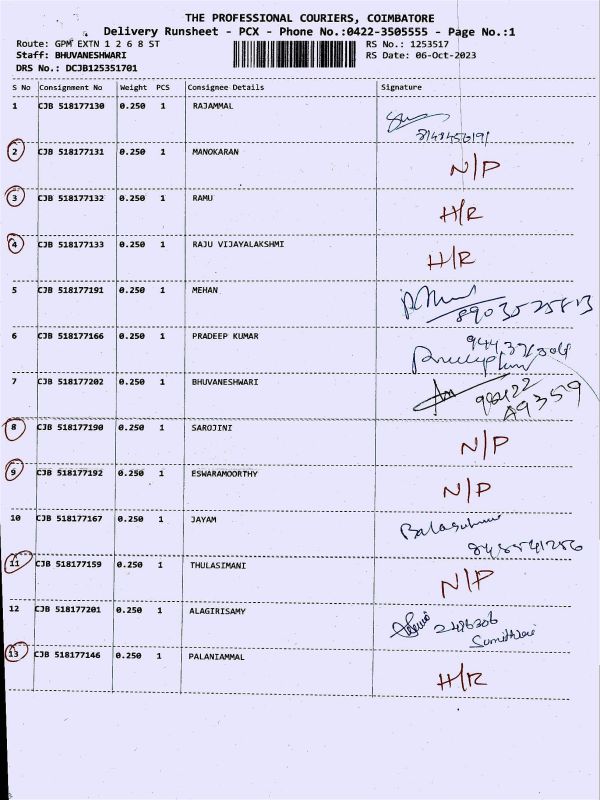 THE PROFESSIONAL COURIERS, COIMBATORE
Delivery Runsheet - PCX - Phone No.:0422-3505555 - Page No.:1
Route: GPM EXTN 1 2 6 8 ST RS No.: 1253517
Staff: BHUVANESHWARI RS Date: 06-Oct-2023
DRS No.: DCJB125351701
S No Consignment No Weight PCS Consignee Details Signature
1 CJB 518177130 0.250 1 RAJAMMAL
2 CJB 518177131 0.250 1 MANOKARAN N/P
3 CJB 518177132 0.250 1 RAMU H/R
4 CJB 518177133 0.250 1 RAJU VIJAYALAKSHMI H/R
5 CJB 518177191 0.250 1 MEHAN
6 CJB 518177166 0.250 1 PRADEEP KUMAR
7 CJB 518177202 0.250 1 BHUVANESHWARI
8 CJB 518177190 0.250 1 SAROJINI N/P
9 CJB 518177192 0.250 1 ESWARAMOORTHY N/P
10 CJB 518177167 0.250 1 JAYAM
11 CJB 518177159 0.250 1 THULASIMANI N/P
12 CJB 518177201 0.250 1 ALAGIRISAMY 2486306
13 CJB 518177146 0.250 1 PALANIAMMAL H/R